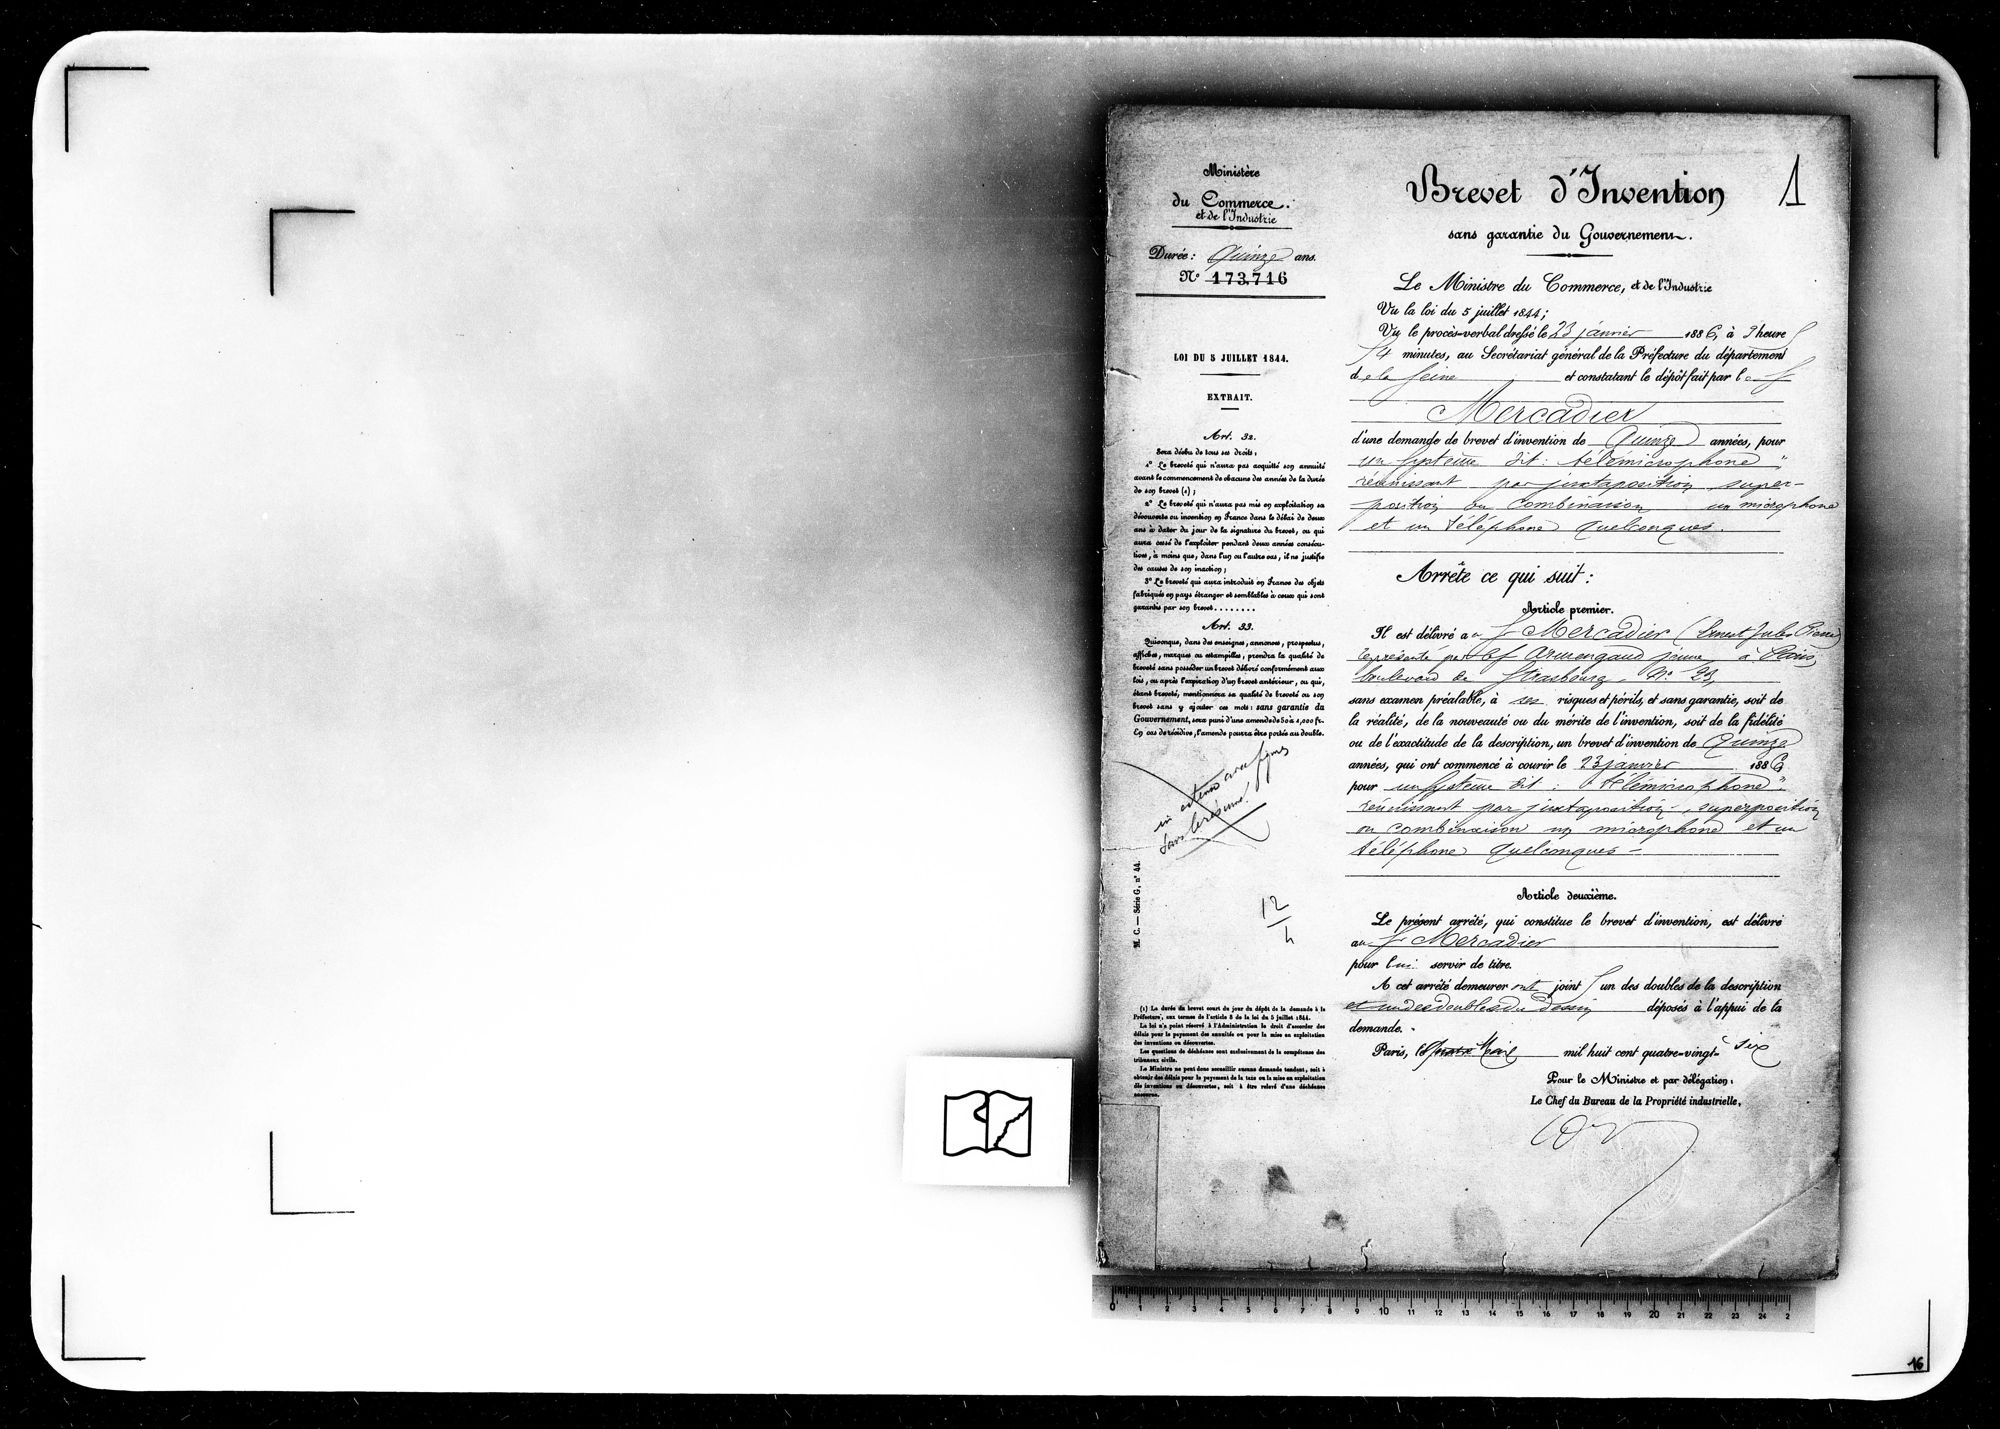 Ministère
du Commerce.
et de l'Industrie
Durée : Quinze ans.
N° 173.716
LOI DU 5 JUILLET 1844.
EXTRAIT.
Art. 32.
Sera déchu de tous ses droits :
1° Le breveté qui n'aura pas acquitté son annuité
avant le commencement de chacune des années de la durée
de son brevet (1) ;
2° Le breveté qui n'aura pas mis en exploitation sa
découverte ou invention en France dans le délai de deux
ans à dater du jour de la signature du brevet, ou qui
aura cessé de l'exploiter pendant deux années consécu-
tives, à moins que, dans l'un ou l'autre cas, il ne justifie
des causes de son inaction ;
3° Le breveté qui aura introduit en France des objets
fabriqués en pays étranger et semblables à ceux qui sont
garantis par son brevet........
Art. 33.
Quiconque, dans des enseignes, annonces, prospectus,
affiches, marques ou estampilles, prendra la qualité de
breveté sans posséder un brevet délivré conformément aux
lois, ou après l'expiration d'un brevet antérieur, ou qui,
étant breveté, mentionnera sa qualité de breveté ou son
brevet sans y ajouter ces mots : sans garantie du
Gouvernement, sera puni d'une amende de 50 à 1,000 fr.
En cas de récidive, l'amende pourra être portée au double.
in extenso avec figures
sans le résumé.
12
4
M. C. — Série G, n° 44.
(1) La durée du brevet court du jour du dépôt de la demande à la
Préfecture, aux termes de l'article 8 de la loi du 5 juillet 1844.
La loi n'a point réservé à l'Administration le droit d'accorder des
délais pour le payement des annuités ou pour la mise en exploitation
des inventions ou découvertes.
Les questions de déchéance sont exclusivement de la compétence des
tribunaux civils.
Le Ministre ne peut donc accueillir aucune demande tendant, soit à
obtenir des délais pour le payement de la taxe ou la mise en exploitation
des inventions ou découvertes, soit à être relevé d'une déchéance
encourue.
Brevet d'Invention
1
sans garantie du Gouvernement.
Le Ministre du Commerce, et de l'Industrie
Vu la loi du 5 juillet 1844 ;
Vu le procès-verbal dressé le 23 janvier 1886, à 3 heure
4 minutes, au Secrétariat général de la Préfecture du département
de la Seine et constatant le dépôt fait par le S
Mercadier
d'une demande de brevet d'invention de Quinze années, pour
un système dit : télémicrophone "
réunissant par juxtaposition super-
position ou combinaison un microphone
et un téléphone quelconques.
Arrête ce qui suit :
Article premier.
Il est délivré au S Mercadier (Ernest Jules Pierre)
représenté par le S Armengaud jeune à Paris,
boulevard de Strasbourg, N° 23,
sans examen préalable, à ses risques et périls, et sans garantie, soit de
la réalité, de la nouveauté ou du mérite de l'invention, soit de la fidélité
ou de l'exactitude de la description, un brevet d'invention de Quinze
années, qui ont commencé à courir le 23 janvier 1886
pour un système dit : télémicrophone "
réunissant par juxtaposition, superposition
ou combinaison un microphone et un
téléphone quelconques —
Article deuxième.
Le présent arrêté, qui constitue le brevet d'invention, est délivré
au S Mercadier
pour lui servir de titre.
A cet arrêté demeureront joint un des doubles de la description
et un des doubles du dessin déposés à l'appui de la
demande.
Paris, le Quatre Mai mil huit cent quatre-vingt-six
Pour le Ministre et par délégation :
Le Chef du Bureau de la Propriété industrielle,
0 1 2 3 4 5 6 7 8 9 10 11 12 13 14 15 16 17 18 19 20 21 22 23 24 2
16